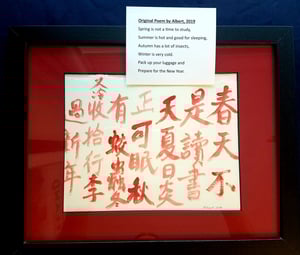 Original Poem by Albert, 2019
Spring is not a time to study,
Summer is hot and good for sleeping,
Autumn has a lot of insects,
Winter is very cold.
Pack up your luggage and
Prepare for the New Year.
春天不
是讀書
天夏日炎
正可眠秋
有蚊蟲冬
又冷
收拾行李
過新年